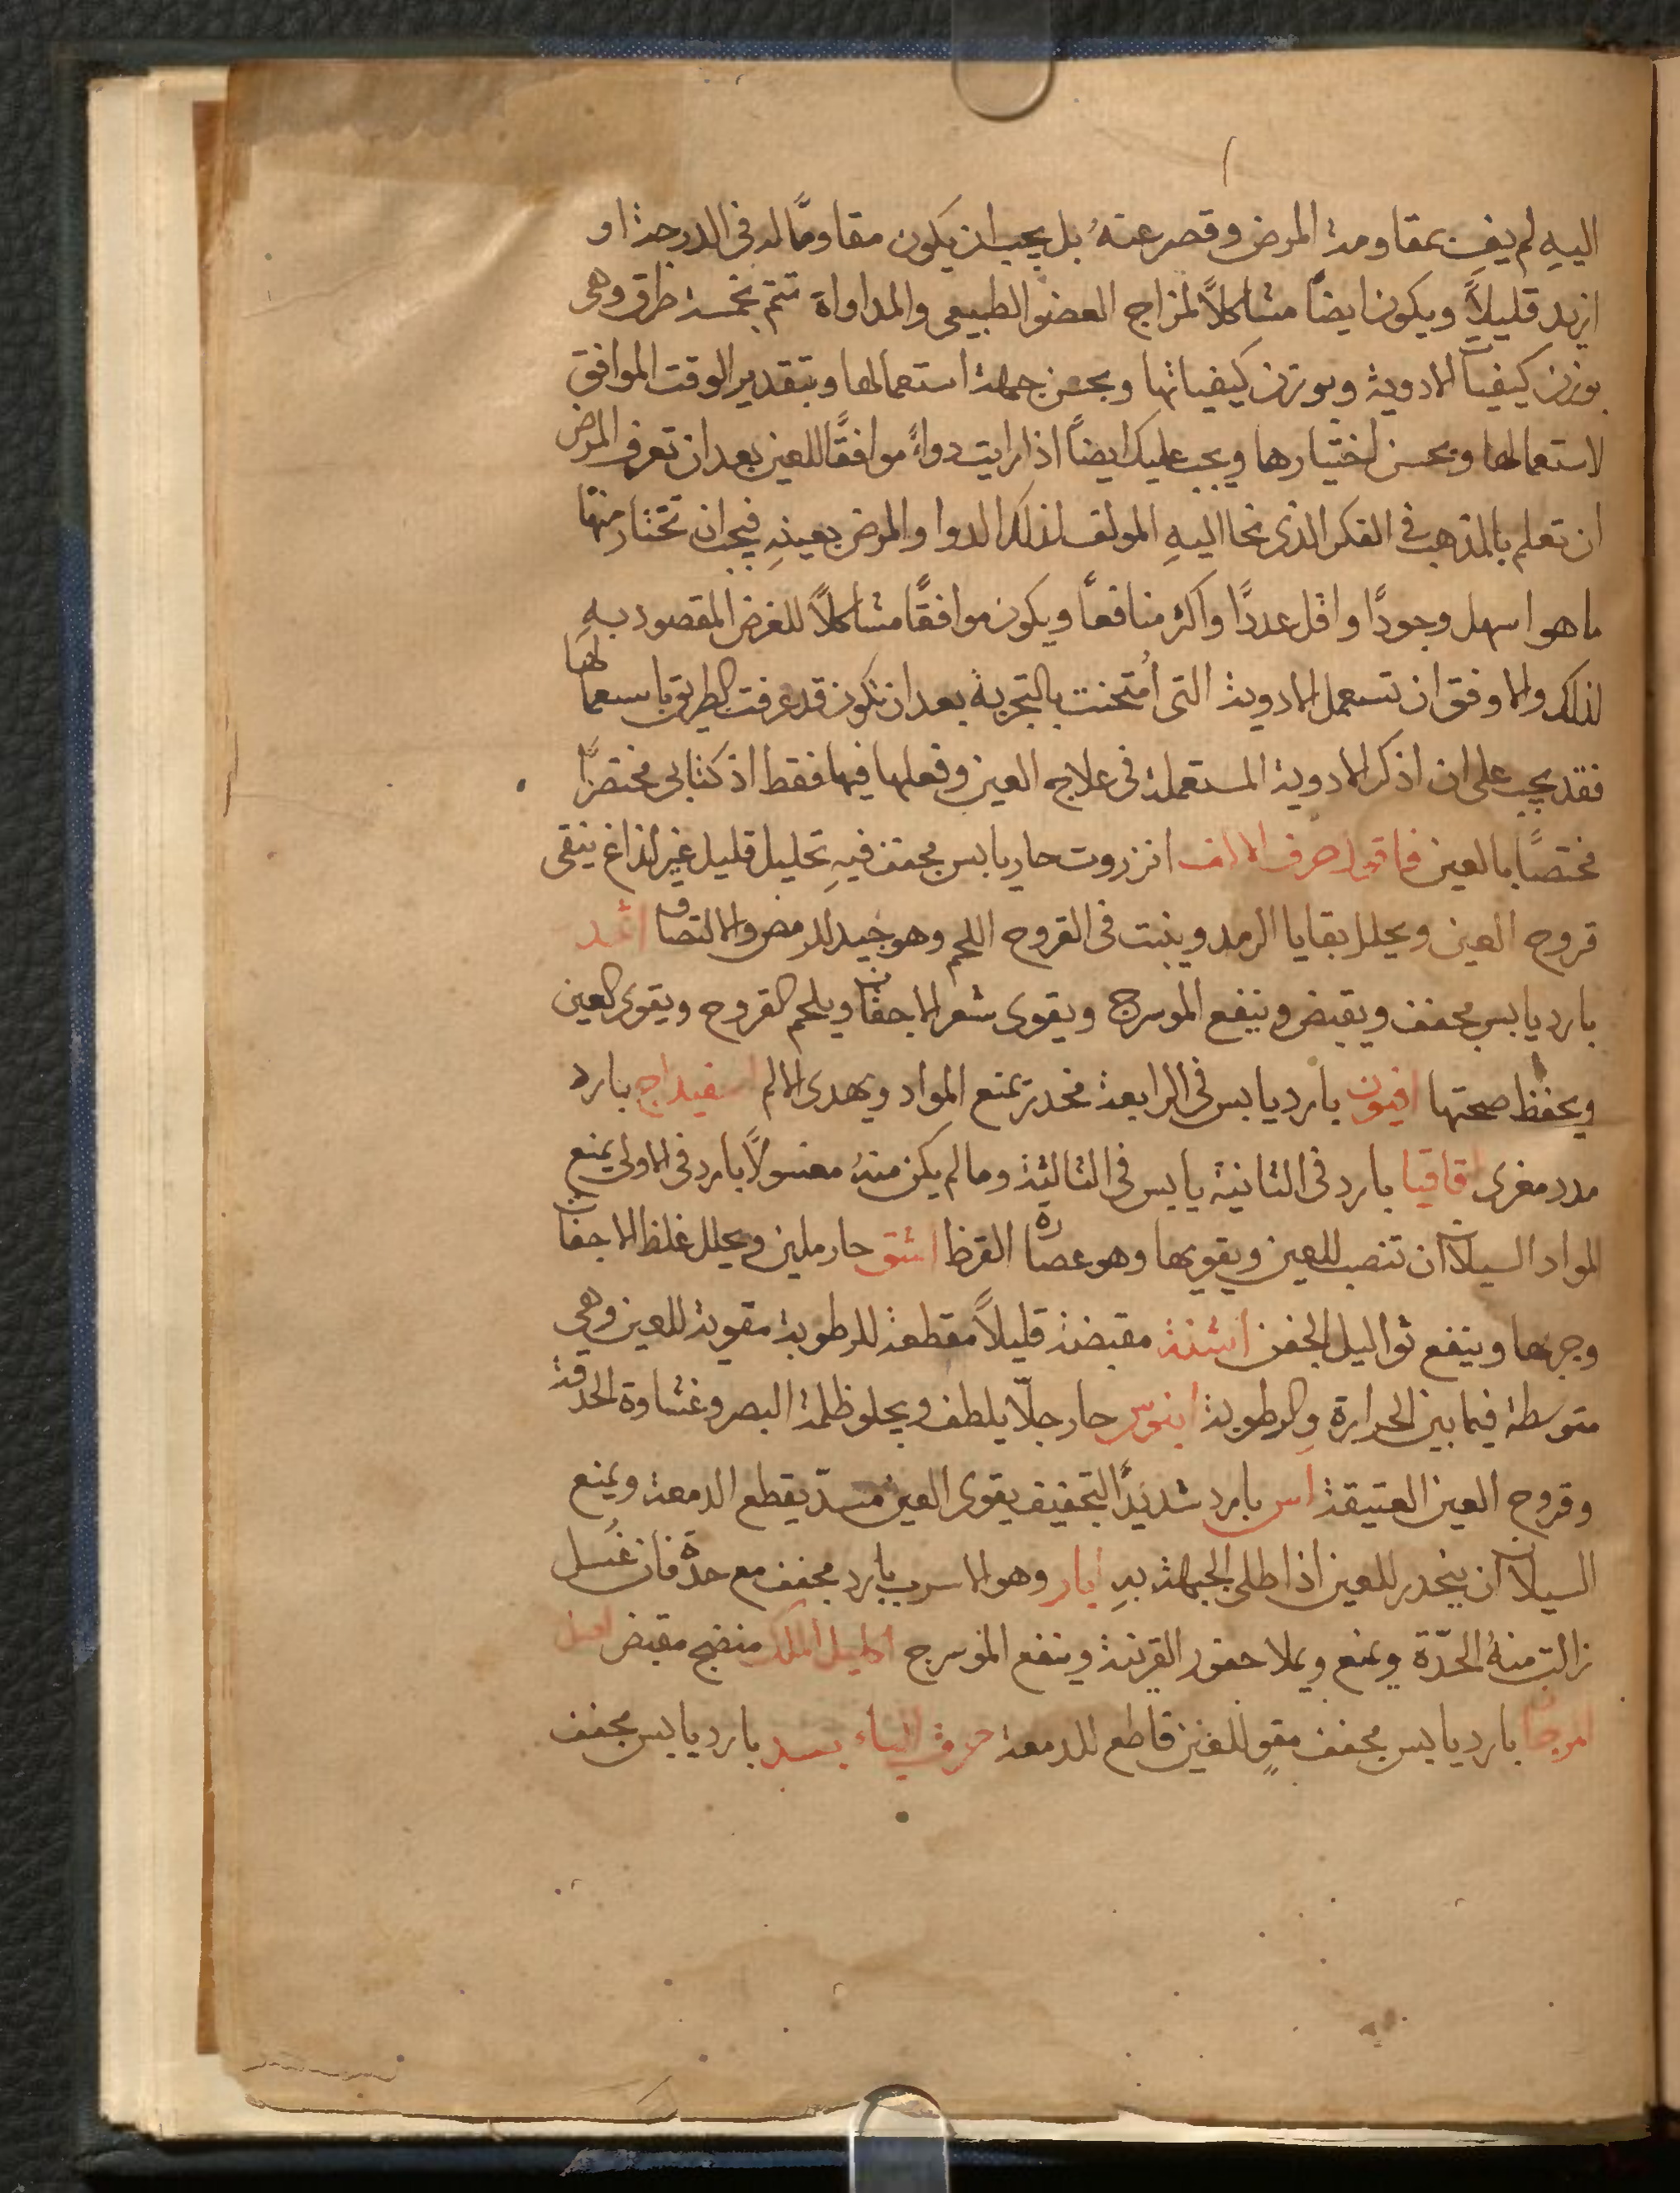 اليهِ لم يفِ بمقاومة المرض وقصر عنهُ بل يجب ان يكون مقاومًا له فى الدرجة او
ازيد قليلاً ويكون ايضًا مشاكلاً لمزاج العضو الطبيعى والمداواة تتم بخمسة طرق وهى
بوزن كيفيات الادوية وبوزن كيفياتها وبحسن جهة استعمالها وبتقدير الوقت الموافق
لاستعمالها وبحسن اختيارها ويجب عليك ايضًا اذا رايت دواءً موافقًا للعين بعد ان تعرف المرض
ان تعلم بالمذهب فى الفكر الذى نحا اليهِ المولف لذلك الدوا والمرض بعينهِ فيجب ان تختار منها
ما هو اسهل وجودًا واقل عددًا واكثر منافعًا ويكون موافقًا مشاكلاً للغرض المقصود بهِ
لذلك والاوفق ان تستعمل الادوية التى اُمتحنت بالتجربة بعد ان تكون قد عرفت الطريق باستعمالها
فقد يجب على ان اذكر الادوية المستعملة فى علاج العين وفعلها فيها فقط اذ كتابى مختصرًا
مختصًا بالعين فاقول حرف الالف انزروت حار يابس مجفف فيهِ تحليل قليل غير لذاغ ينقى
قروح العين ويحلل بقايا الرمد وينبت فى القروح اللحم وهو جيد للرمص والالتصاق اثمد
بارد يابس مجفف ويقبض وينفع الموسرج ويقوى شعر الاجفان ويلحم القروح ويقوى العين
ويحفظ صحتها افيون بارد يابس فى الرابعة مخدر يمنع المواد ويهدى الالم اسفيداج بارد
مدد مغرى اقاقيا بارد فى الثانية يابس فى الثالثة وما لم يكن منهُ مغسولاً بارد فى الاولى يمنع
المواد السيالان ان تنصب للعين ويقويها وهو عصارة القرظ اشق حار ملين ويحلل غلظ الاجفان
وجربها وينفع ثواليل الجفن اشنة مقبضة قليلاً مقطعة للرطوبة مقوية للعين وهى
متوسطة فيما بين الحرارة والرطوبة ابنوس حار جلّا يلطف ويجلو ظلمة البصر وغشاوة الحدقة
وقروح العين العتيقة اس بارد شديدًا التجفيف يقوى العين مسدّ يقطع الدمعة ويمنع
السيالان ان ينحدر للعين اذا طلى الجبهة بهِ ابار وهو الاسرب بارد مجفف مع حدة فان غُسل
زالت منهُ الحدّة ويمنع ويملا حفور القرنية وينفع الموسرج اكليل الملك منضج مقبض اصل
المرجان بارد يابس مجفف مقوٍ للعين قاطع للدمعة حرف الباء بسد بارد يابس مجفف